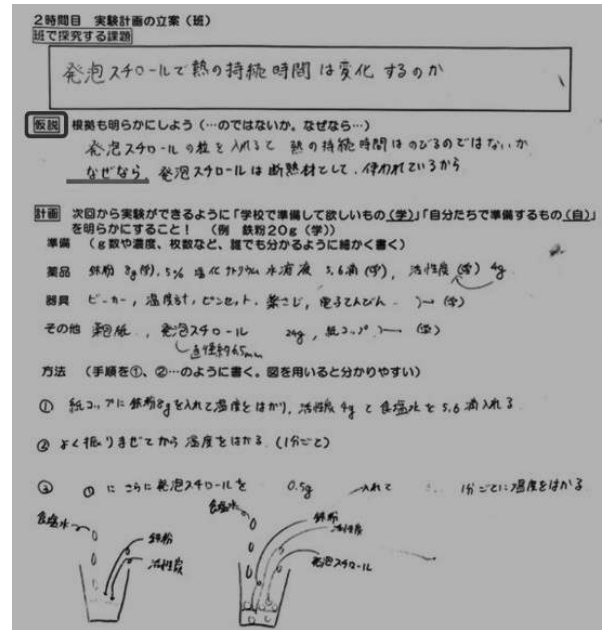 2時間目 実験計画の立案(班)
班で探究する課題
発泡スチロールで熱の持続時間は変化するのか
仮説 根拠も明らかにしよう(…のではないか。なぜなら…)
発泡スチロールの粒を入れると 熱の持続時間はのびるのではないか
なぜなら、発泡スチロールは断熱材として、使われているから
計画 次回から実験ができるように「学校で準備して欲しいもの(学)」「自分たちで準備するもの(自)」
を明らかにすること! (例 鉄粉20g(学))
準備 (g数や濃度、枚数など、誰でも分かるように細かく書く)
薬品 鉄粉 8g(学), 5% 塩化ナトリウム水溶液 5,6滴(学), 活性炭(学) 4g
器具 ビーカー, 温度計, ピンセット, 薬さじ, 電子てんびん (学)
その他 薬包紙, 発泡スチロール 24g, 紙コップ (学)
直径約6.5mm
方法 (手順を①、②…のように書く。図を用いると分かりやすい)
① 紙コップに鉄粉8gを入れて温度をはかり, 活性炭4gと食塩水を5,6滴入れる
② よく振りまぜてから温度をはかる (1分ごと)
③ ①にさらに発泡スチロールを 0.5g 入れて 1分ごとに温度をはかる
食塩水 鉄粉 活性炭
食塩水 鉄粉 活性炭 発泡スチロール